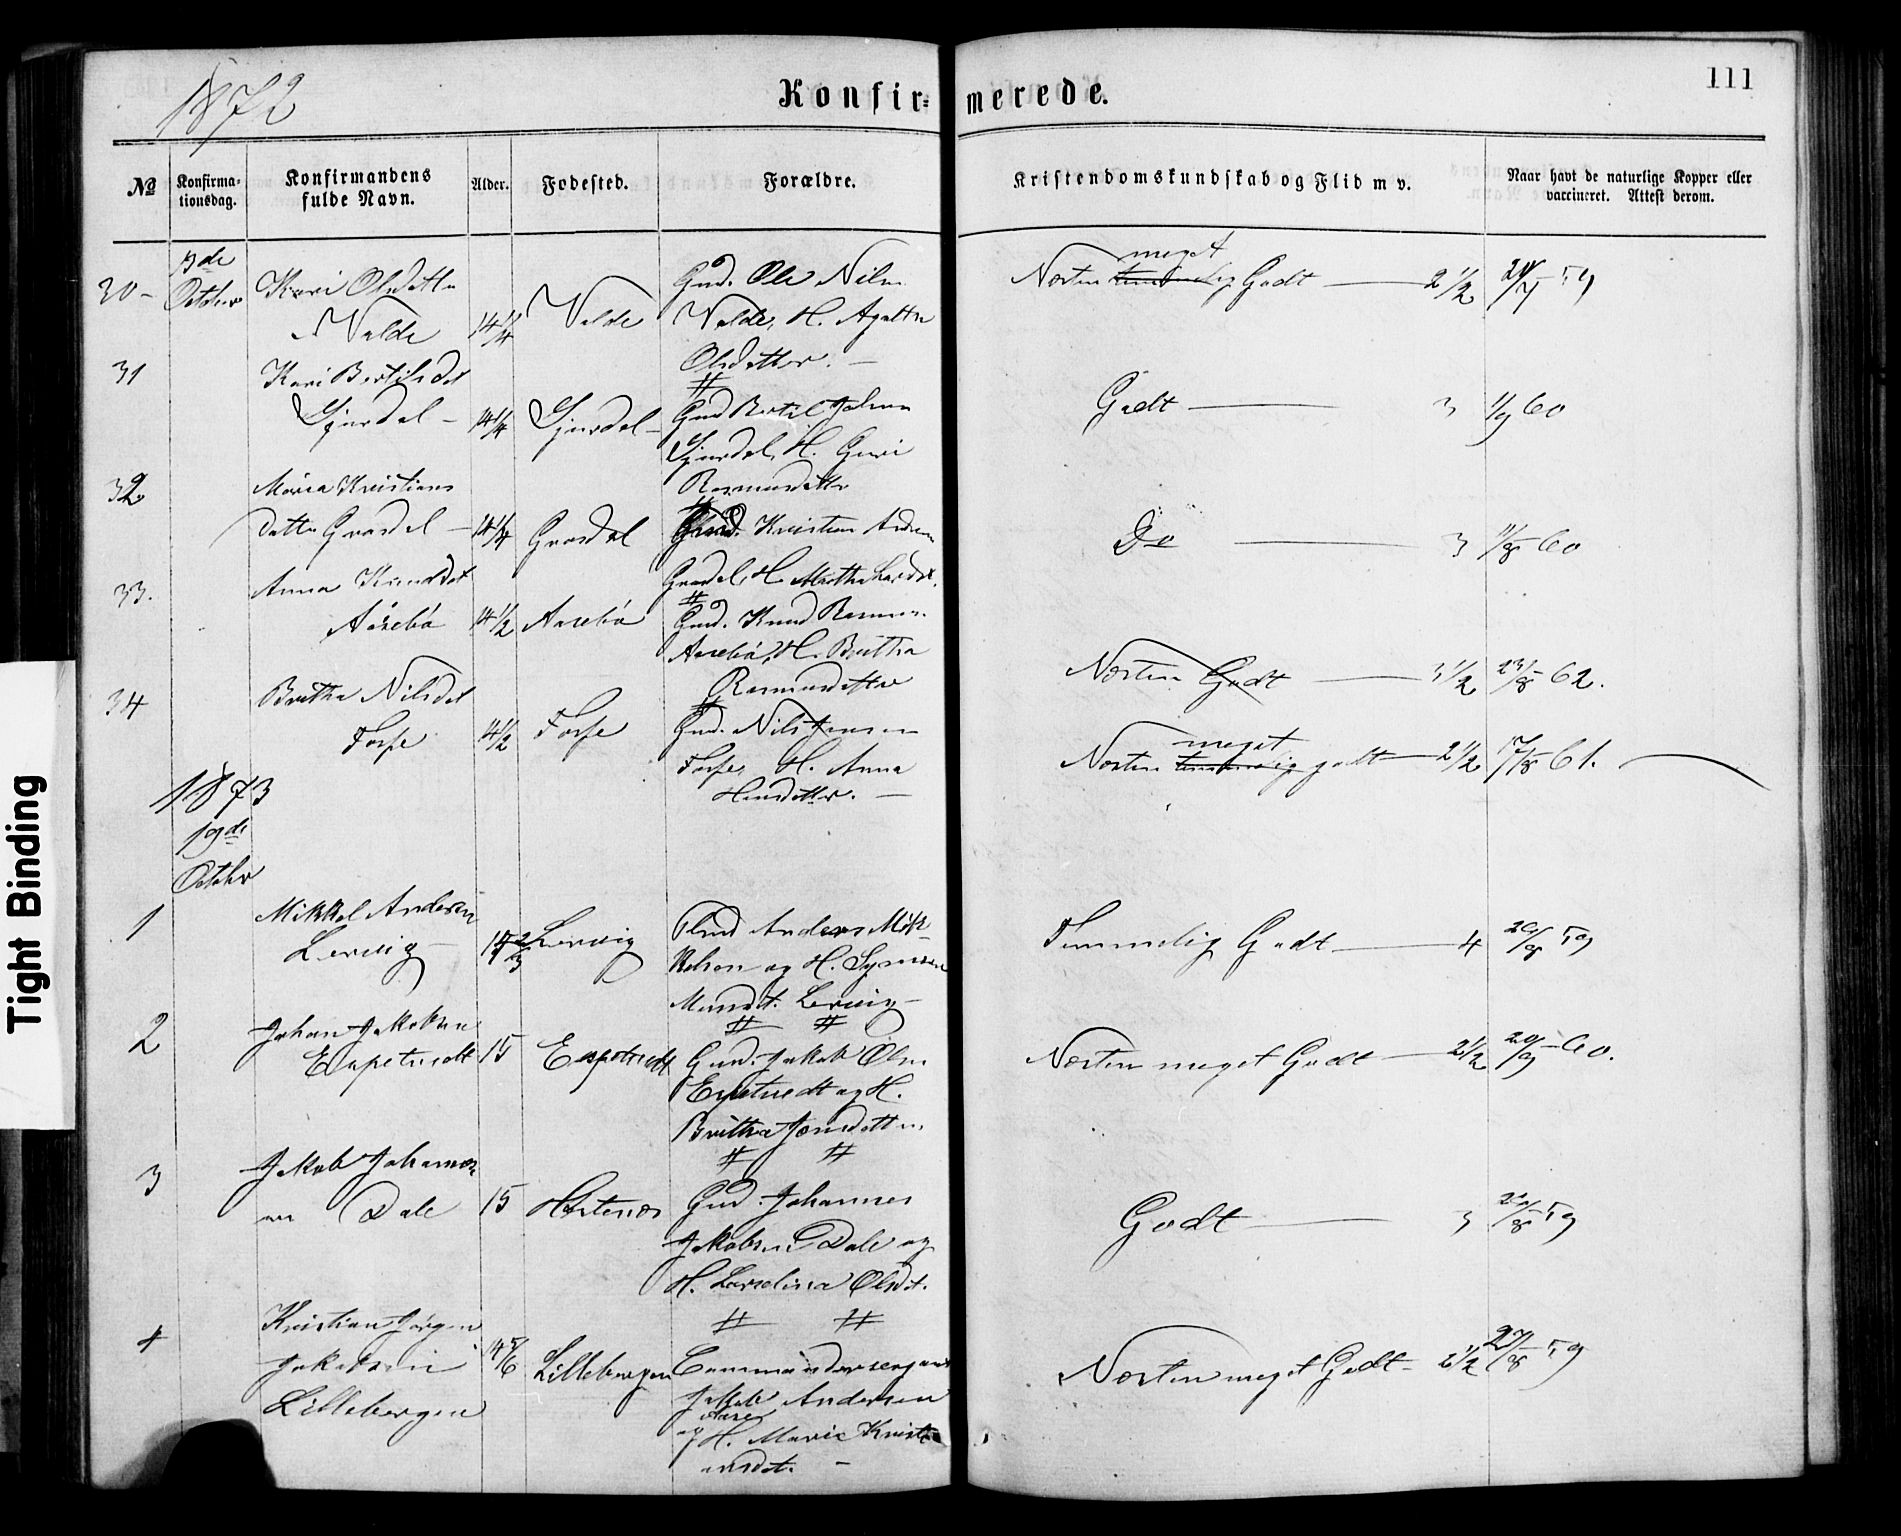 1872
Konfir= merede.
111
№
Konfirma-
tionsdag.
Konfirmandens
fulde Navn.
Alder.
Fødested.
Forældre.
Kristendomskundskab og Flid m v.
Naar havt de naturlige Kopper eller
vaccineret. Attest derom.
30 -
October
Kari Olsdatter
14 1/4
Gmd. Ole Nilsen
H. Agathe
Olsdatter. -
Næsten meget temmelig Godt — 2 1/2
31
Kari Bertilsdet
Gjesdal - 14 1/4 Gjesdal -
Gmd Bertil
Gjesdal, H. Guri
Rasmusdatter
Godt — 3 1/9 60
32
Maria Kristians
datter Grasdal - 14 1/4 Grasdal
Gmd. Kristian
H. Marthe
Do — 3 11/8 60
33.
Anna Knudsdet
Aarebø 14 1/2 Aarebø
Gmd. Knud Rasmus.
Aarebø, H. Brithe
Rasmusdatter
Næsten Godt — 3 1/2 23/8 62.
34
Brithe Nilsdet
Fosse 14 1/2 Fosse
Gmd. Nils Jensen
Fosse, H. Anna
Næsten meget temmelig godt — 2 1/2 17/8 61.
1873
19de
October
1
Mikkel Andersen
Lervig - Lervig
Anders Mik-
kelsen og H.
Lervig -
Temmelig Godt — 4 59
2
Johan Jakobsen
Espetvedt 15 Espetvedt
Gmd. Jakob Olsen
Espetvedt og H.
Brithe Jonsdatter
Næsten meget Godt — 2 1/2 20/9 - 60.
3
Jakob Johannes-
en Dale 15 Hestenes
Gmd. Johannes
Jakobsen Dale og
H. Olsdt.
Godt — 3 59
4
Kristian Jørgen
Jakobsen 14 5/6 Lillebergen
Lillebergen
Commandersergeant
Jakob Andersen
Aase
og H. Marie Kristi-
ansdt. -
Næsten meget Godt - 2 1/2 27/8 59
Tight Binding